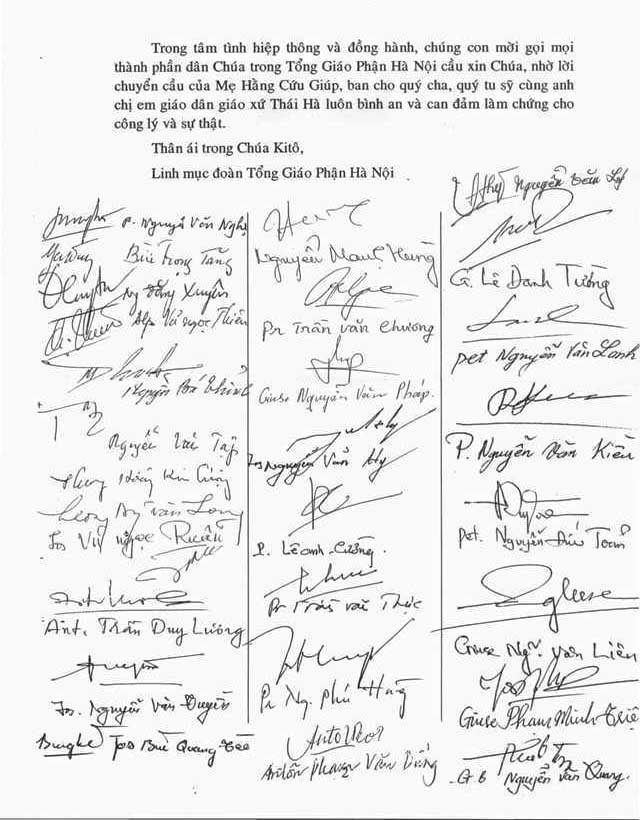 Trong tâm tình hiệp thông và đồng hành, chúng con mời gọi mọi
thành phần dân Chúa trong Tổng Giáo Phận Hà Nội cầu xin Chúa, nhờ lời
chuyển cầu của Mẹ Hằng Cứu Giúp, ban cho quý cha, quý tu sỹ cùng anh
chị em giáo dân giáo xứ Thái Hà luôn bình an và can đảm làm chứng cho
công lý và sự thật.
Thân ái trong Chúa Kitô,
Linh mục đoàn Tổng Giáo Phận Hà Nội
P. Nguyễn Văn Nghị
Bùi Trọng Tăng
Ng Đông Xuyên
Vũ Ngọc Thiên
Nguyễn Bá
Nguyễn Văn Tập
Hoàng Kim
Ng Văn Long
Jos Vũ Ngọc Ruẫn
Ant. Trần Duy Lương
Jos. Nguyễn Văn Quyến
Jos Bùi Quang
Nguyễn Hùng
Pr Trần Văn Chương
Giuse Nguyễn Văn Pháp
Jos Nguyễn Văn Hy
P. Lê Anh Cường
Pr Trần Văn Thực
Pr Ng. Phú Hùng
Phạm Văn Dũng
Nguyễn Văn
G. Lê Danh Tường
pet Nguyễn Văn Lanh
P. Nguyễn Văn Kiều
pet. Nguyễn Đức Toàn
Giuse Ng. Văn Liên
Giuse Phạm Minh Triệu
G.B Nguyễn Văn Quang